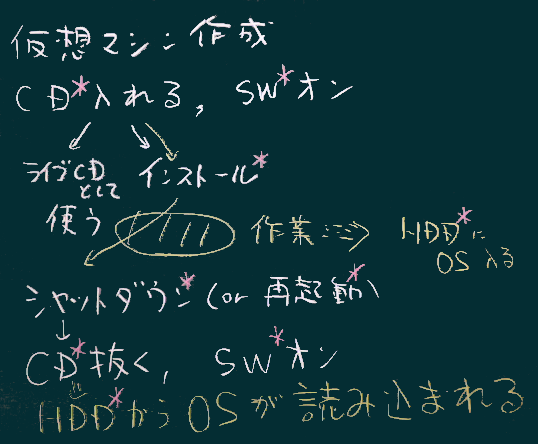 仮想マシン作成
CD*入れる, SW*オン
ライブCD インストール*
として
使う 作業 ⇒ HDD*に
OS入る
シャットダウン*(or 再起動*)
↓
CD*抜く, SW*オン
HDD*からOSが読み込まれる